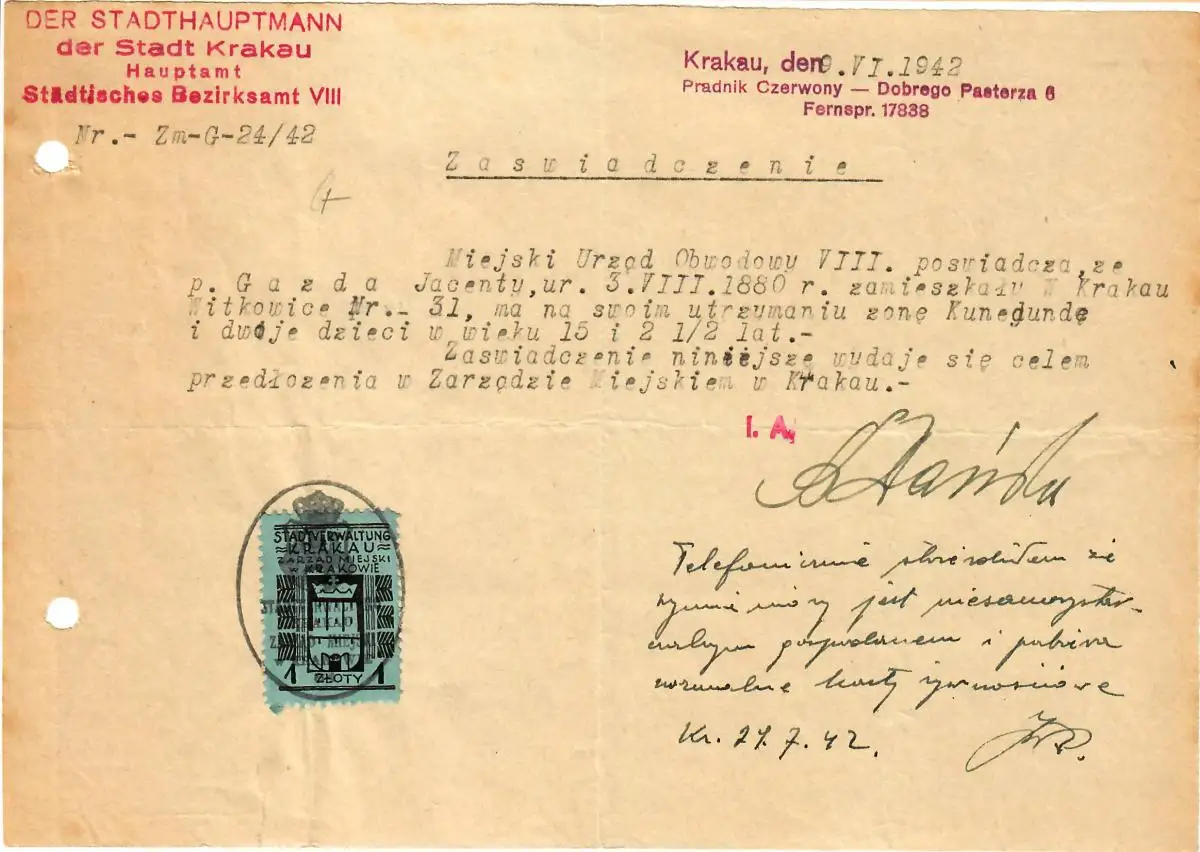 DER STADTHAUPTMANN
der Stadt Krakau
Hauptamt
Städtisches Bezirksamt VIII
Nr.- Zm-G-24/42
Krakau, den 9.VI.1942
Pradnik Czerwony — Dobrego Pasterza 6
Fernspr. 17838
Zaswiadczenie
Miejski Urząd Obwodowy VIII. poswiadcza,ze
p. Gazda Jacenty,ur. 3.VIII.1880 r. zamieszkały W Krakau
Witkowice Nr.- 31, ma na swoim utrzymaniu zonę Kunegundę
i dwoje dzieci w wieku 15 i 2 1/2 lat.-
Zaswiadczenie niniejszę wydaje się celem
przedłozenia w Zarządzie Miejskiem w Krakau.-
I. A.
Telefonicznie stwierdziłem że
wymieniony jest niesamowystar-
czalnym gospodarzem i pobiera
normalne karty żywnościowe
Kr. 27.7.42.
STADTVERWALTUNG
KRAKAU
ZARZĄD MIEJSKI
W KRAKOWIE
1 ZŁOTY 1